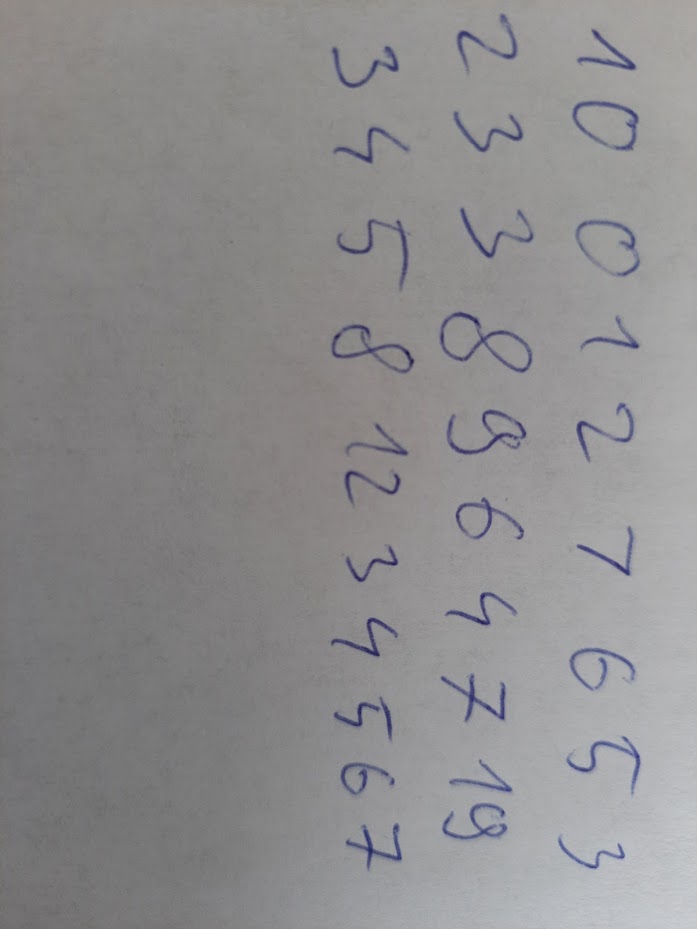 10 0 1 2 7 6 5 3
2 3 3 8 9 6 4 7 19
3 4 5 8 12 3 4 5 6 7